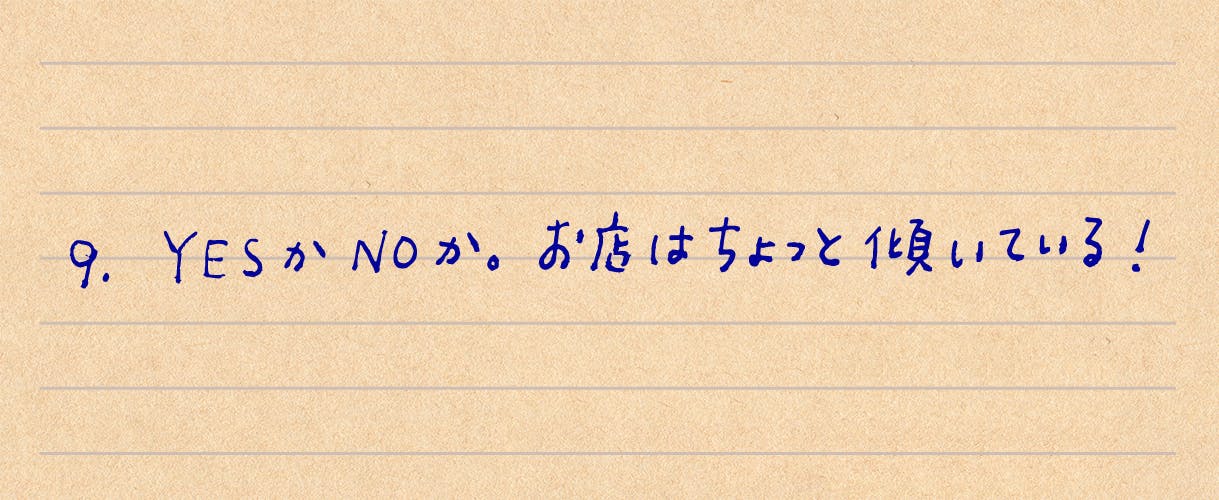 9. YESかNOか。お店はちょっと傾いている！